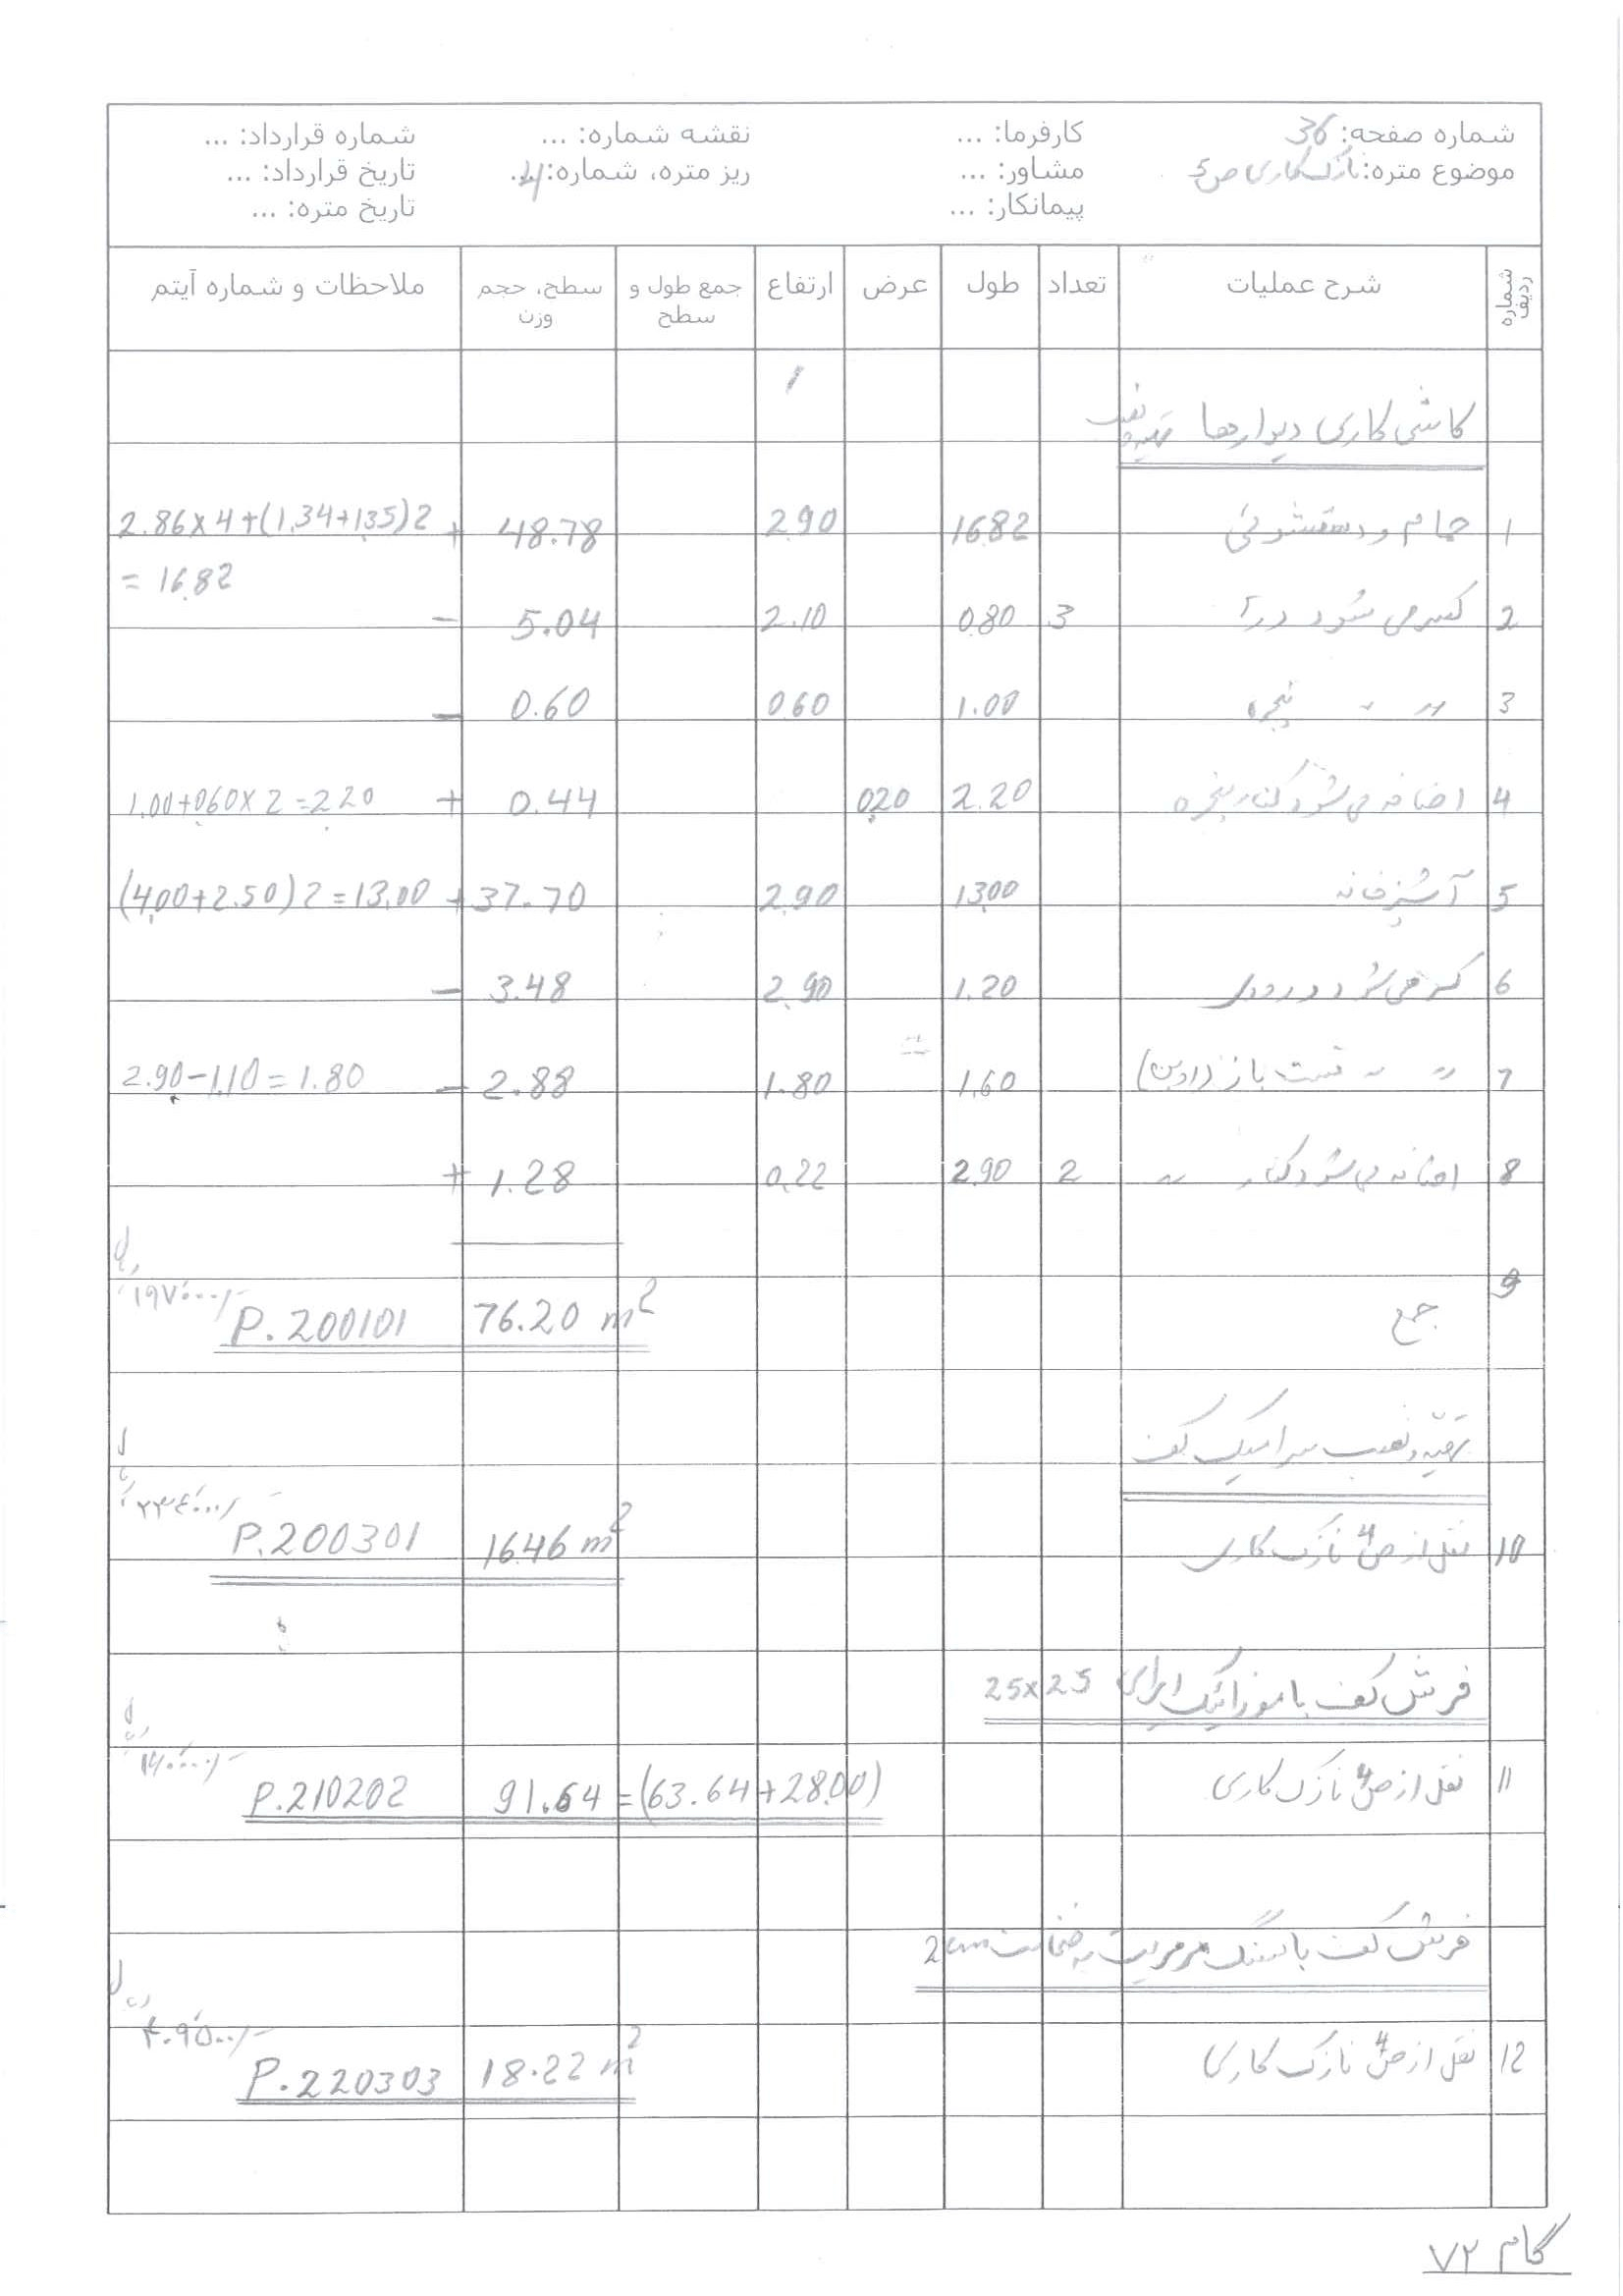 شماره صفحه: 36
کارفرما: ...
نقشه شماره: ...
شماره قرارداد: ...
موضوع متره: نازک کاری ص 5
مشاور: ...
ریز متره، شماره: ...
تاریخ قرارداد: ...
پیمانکار: ...
تاریخ متره: ...
شماره ردیف شرح عملیات تعداد طول عرض ارتفاع جمع طول و سطح سطح، حجم وزن ملاحظات و شماره آیتم
کاشی کاری دیوارها تهیه و نصب
1 حمام و دستشوئی 16.82 2.90 48.78 + 2.86×4+(1.34+1.35)2
= 16.82
2 کسر می شود درآ 3 0.80 2.10 5.04 −
3 〃 〃 پنجره 1.00 0.60 0.60 −
4 اضافه می شود کنار پنجره 2.20 0.20 0.44 + 1.00+0.60×2=2.20
5 آشپزخانه 13.00 2.90 37.70 + (4.00+2.50)2=13.00
6 کسر می شود ورودی 1.20 2.90 3.48 −
7 〃 〃 قسمت باز (اوپن) 1.60 1.80 2.88 − 2.90−1.10=1.80
8 اضافه می شود کنار 〃 2 2.90 0.22 1.28 +
9 جمع 76.20 m² P.200101 ۱۹۷۰۰۰/- ریال
تهیه و نصب سرامیک کف
10 نقل از ص 4 نازک کاری 16.46 m² P.200301 ۲۳۴۰۰۰/ ریال
فرش کف با موزائیک ایرانی 25×25
11 نقل از ص 4 نازک کاری (63.64+28.00)= 91.64 P.210202 ریال
فرش کف با سنگ مرمریت به ضخامت 2cm
12 نقل از ص 4 نازک کاری 18.22 m² P.220303 ۴۰۹۵۰۰/- ریال
گام ۷۲